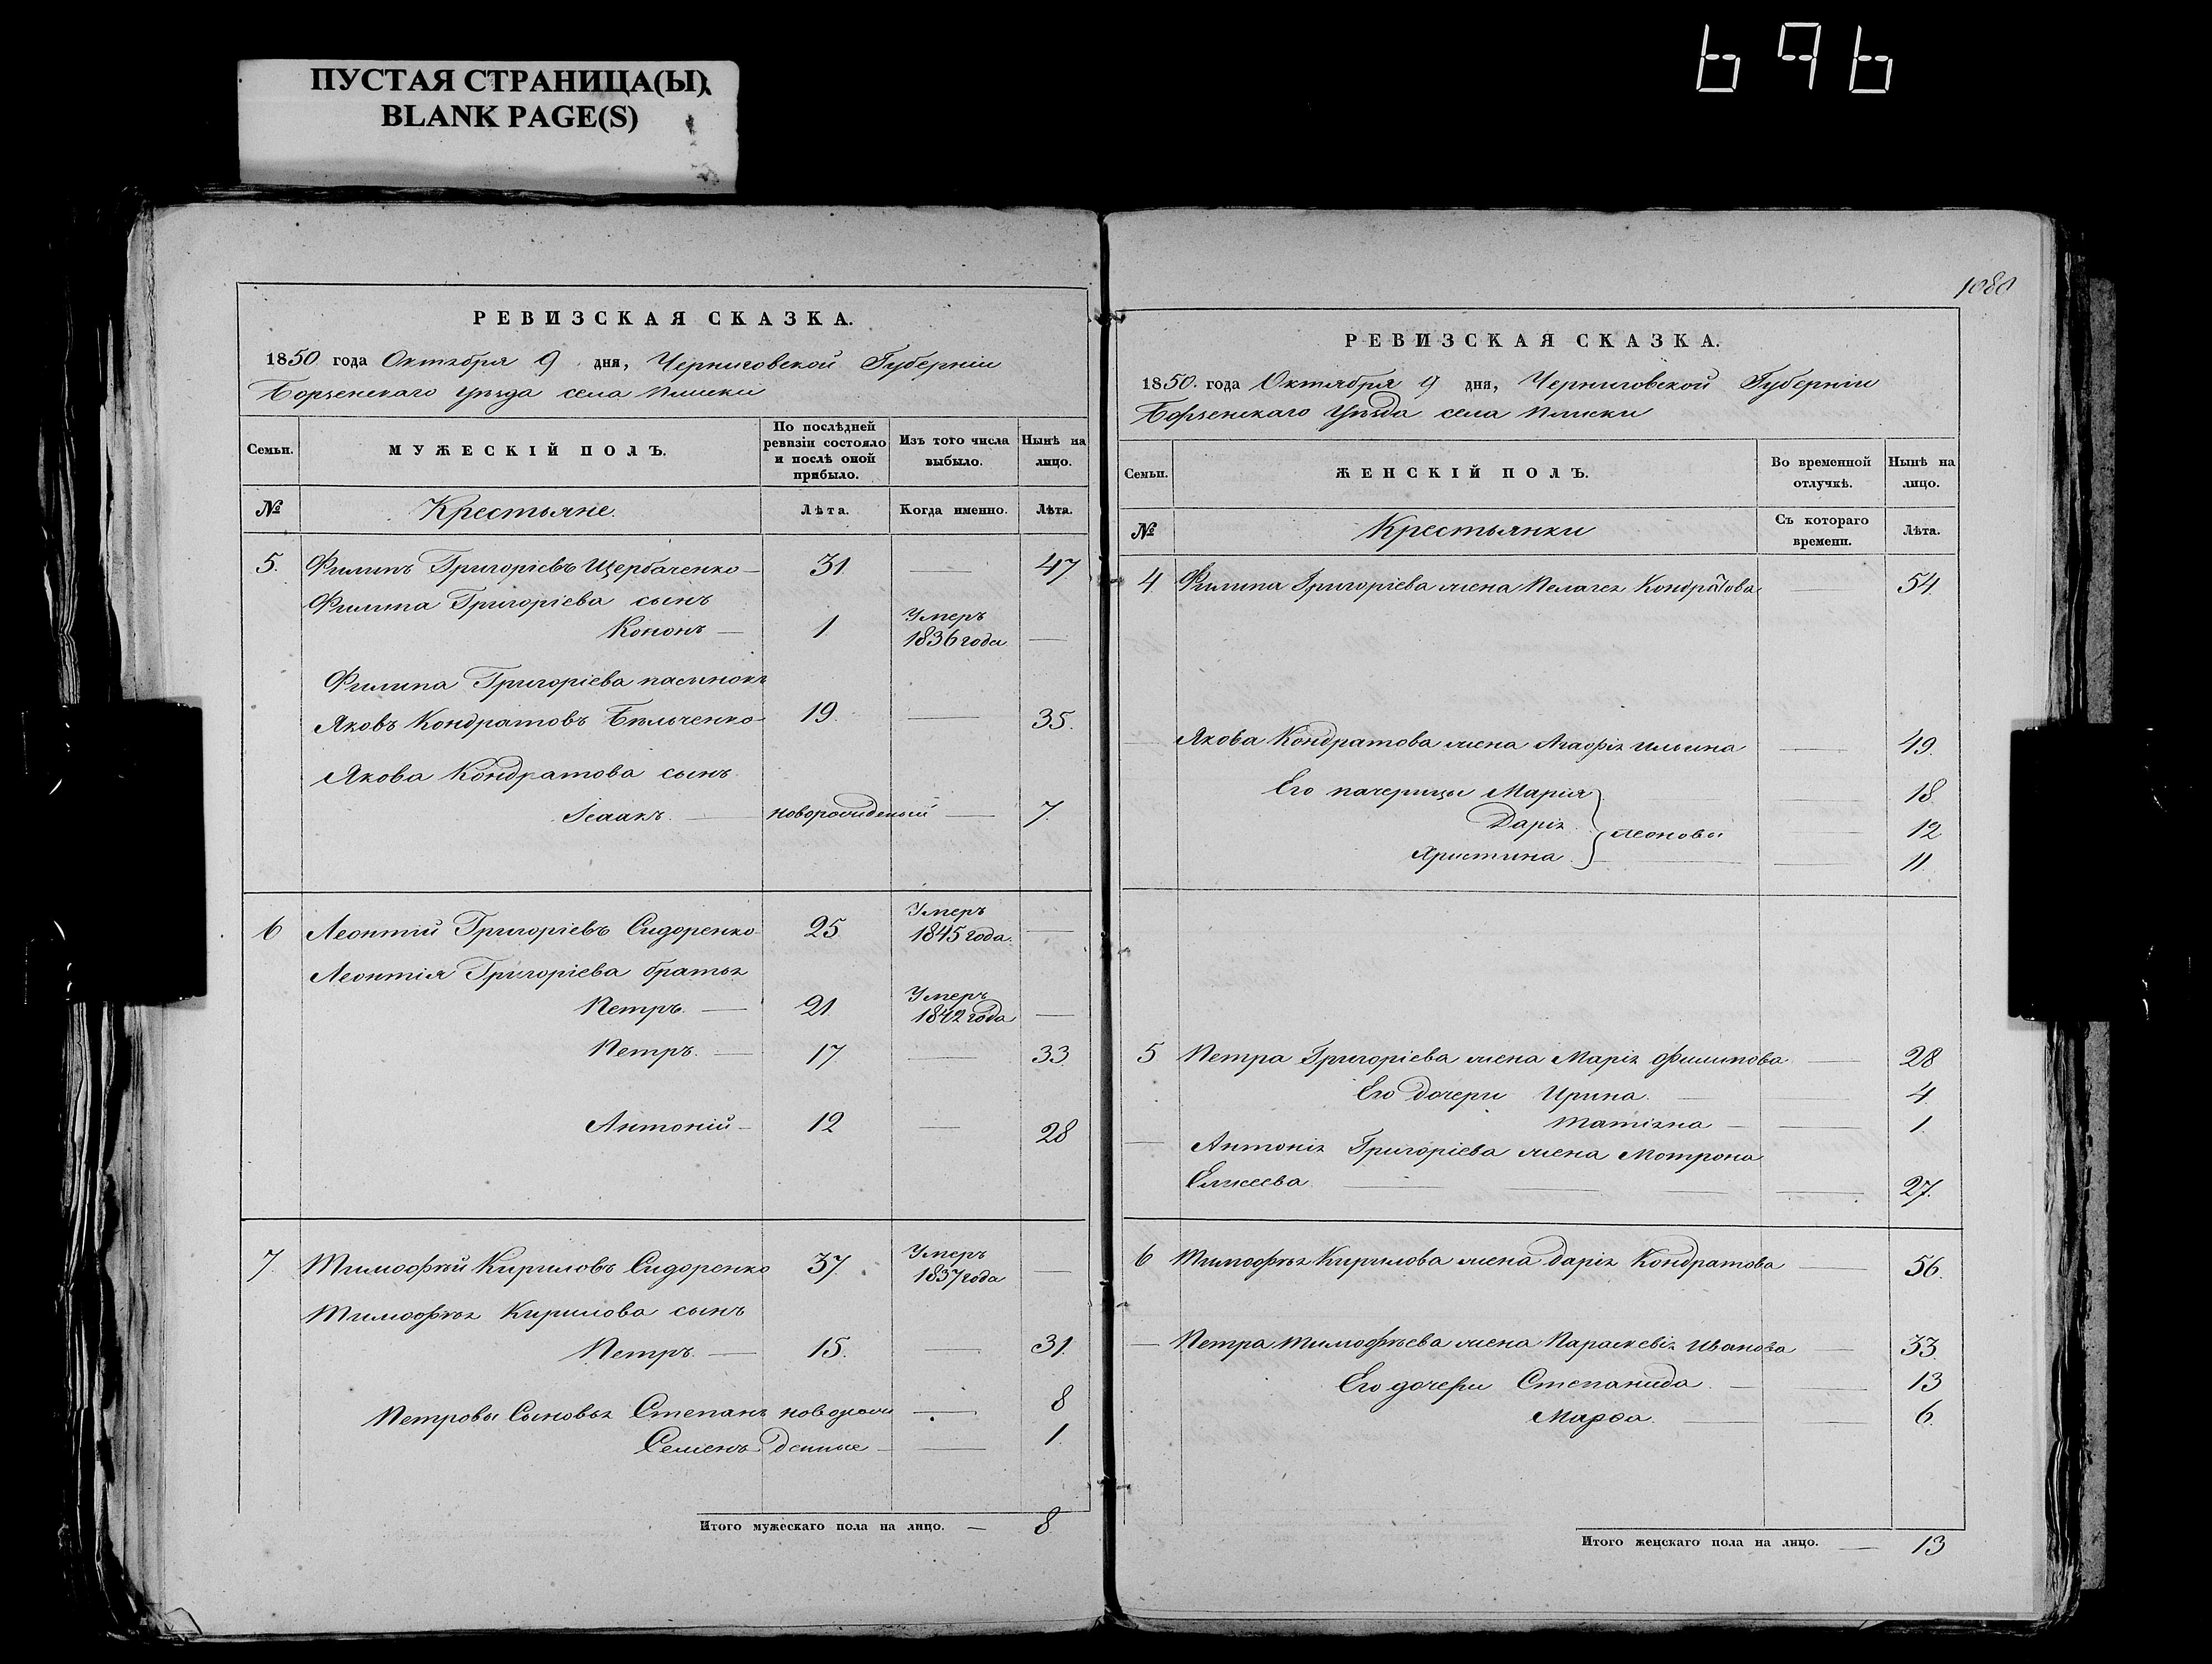 ПУСТАЯ СТРАНИЦА(Ы)
BLANK PAGE(S)
696
РЕВИЗСКАЯ СКАЗКА.
1850 года Октября 9 дня, Черниговской Губерніи
Борзенскаго уѣзда села Плиски
Семьи.
МУЖЕСКІЙ ПОЛЪ.
По послѣдней ревизіи состояло и послѣ оной прибыло.
Изъ того числа выбыло.
Нынѣ на лицо.
№
Крестьяне.
Лѣта.
Когда именно.
Лѣта.
5. Филипъ Григоріевъ Щербаченко — 31 — 47
Филипа Григоріева сынъ
Кононъ — 1. Умеръ 1836 года —
Филипа Григоріева пасынокъ
Яковъ Кондратовъ Бѣльченко 19. — 35.
Якова Кондратова сынъ
Ісаакъ — новорожденый — 7.
6 Леонтій Григоріевъ Сидоренко 25 Умеръ 1845 года. —
Леонтія Григоріева братья
Петръ. — 21 Умеръ 1842 года —
Петръ. — 17 — 33
Антоній — 12 — 28
7. Тимофѣй Кириловъ Сидоренко 37. Умеръ 1837 года —
Тимофѣя Кирилова сынъ
Петръ. — 15. — 31.
Петровы Сыновья Степанъ новорож — 8
Семенъ денные — — 1.
Итого мужескаго пола на лицо. — 8
1080
РЕВИЗСКАЯ СКАЗКА.
1850. года Октября 9 дня, Черниговской Губерніи
Борзенскаго Уѣзда села Плиски
Семьи.
ЖЕНСКІЙ ПОЛЪ.
Во временной отлучкѣ.
Нынѣ на лицо.
№
Крестьянки
Съ котораго времени.
Лѣта.
4 Филипа Григоріева жена Пелагея Кондратова — 54.
— Якова Кондратова жена Агафія Ильина — 49.
Его пачерицы Марія — 18
Дарія Леоновы — 12
Христина — 11
5 Петра Григоріева жена Марія Филипова — 28
Его дочери Ирина. — — 4
Татіяна — — 1
— Антонія Григоріева жена Мотрона
Елисеева — — 27.
6 Тимофѣя Кирилова жена Дарія Кондратова — 56.
— Петра Тимофѣева жена Параскевія Иванова — 33
Его дочери Степанида. — — 13
Марфа. — — 6.
Итого женскаго пола на лицо. — 13